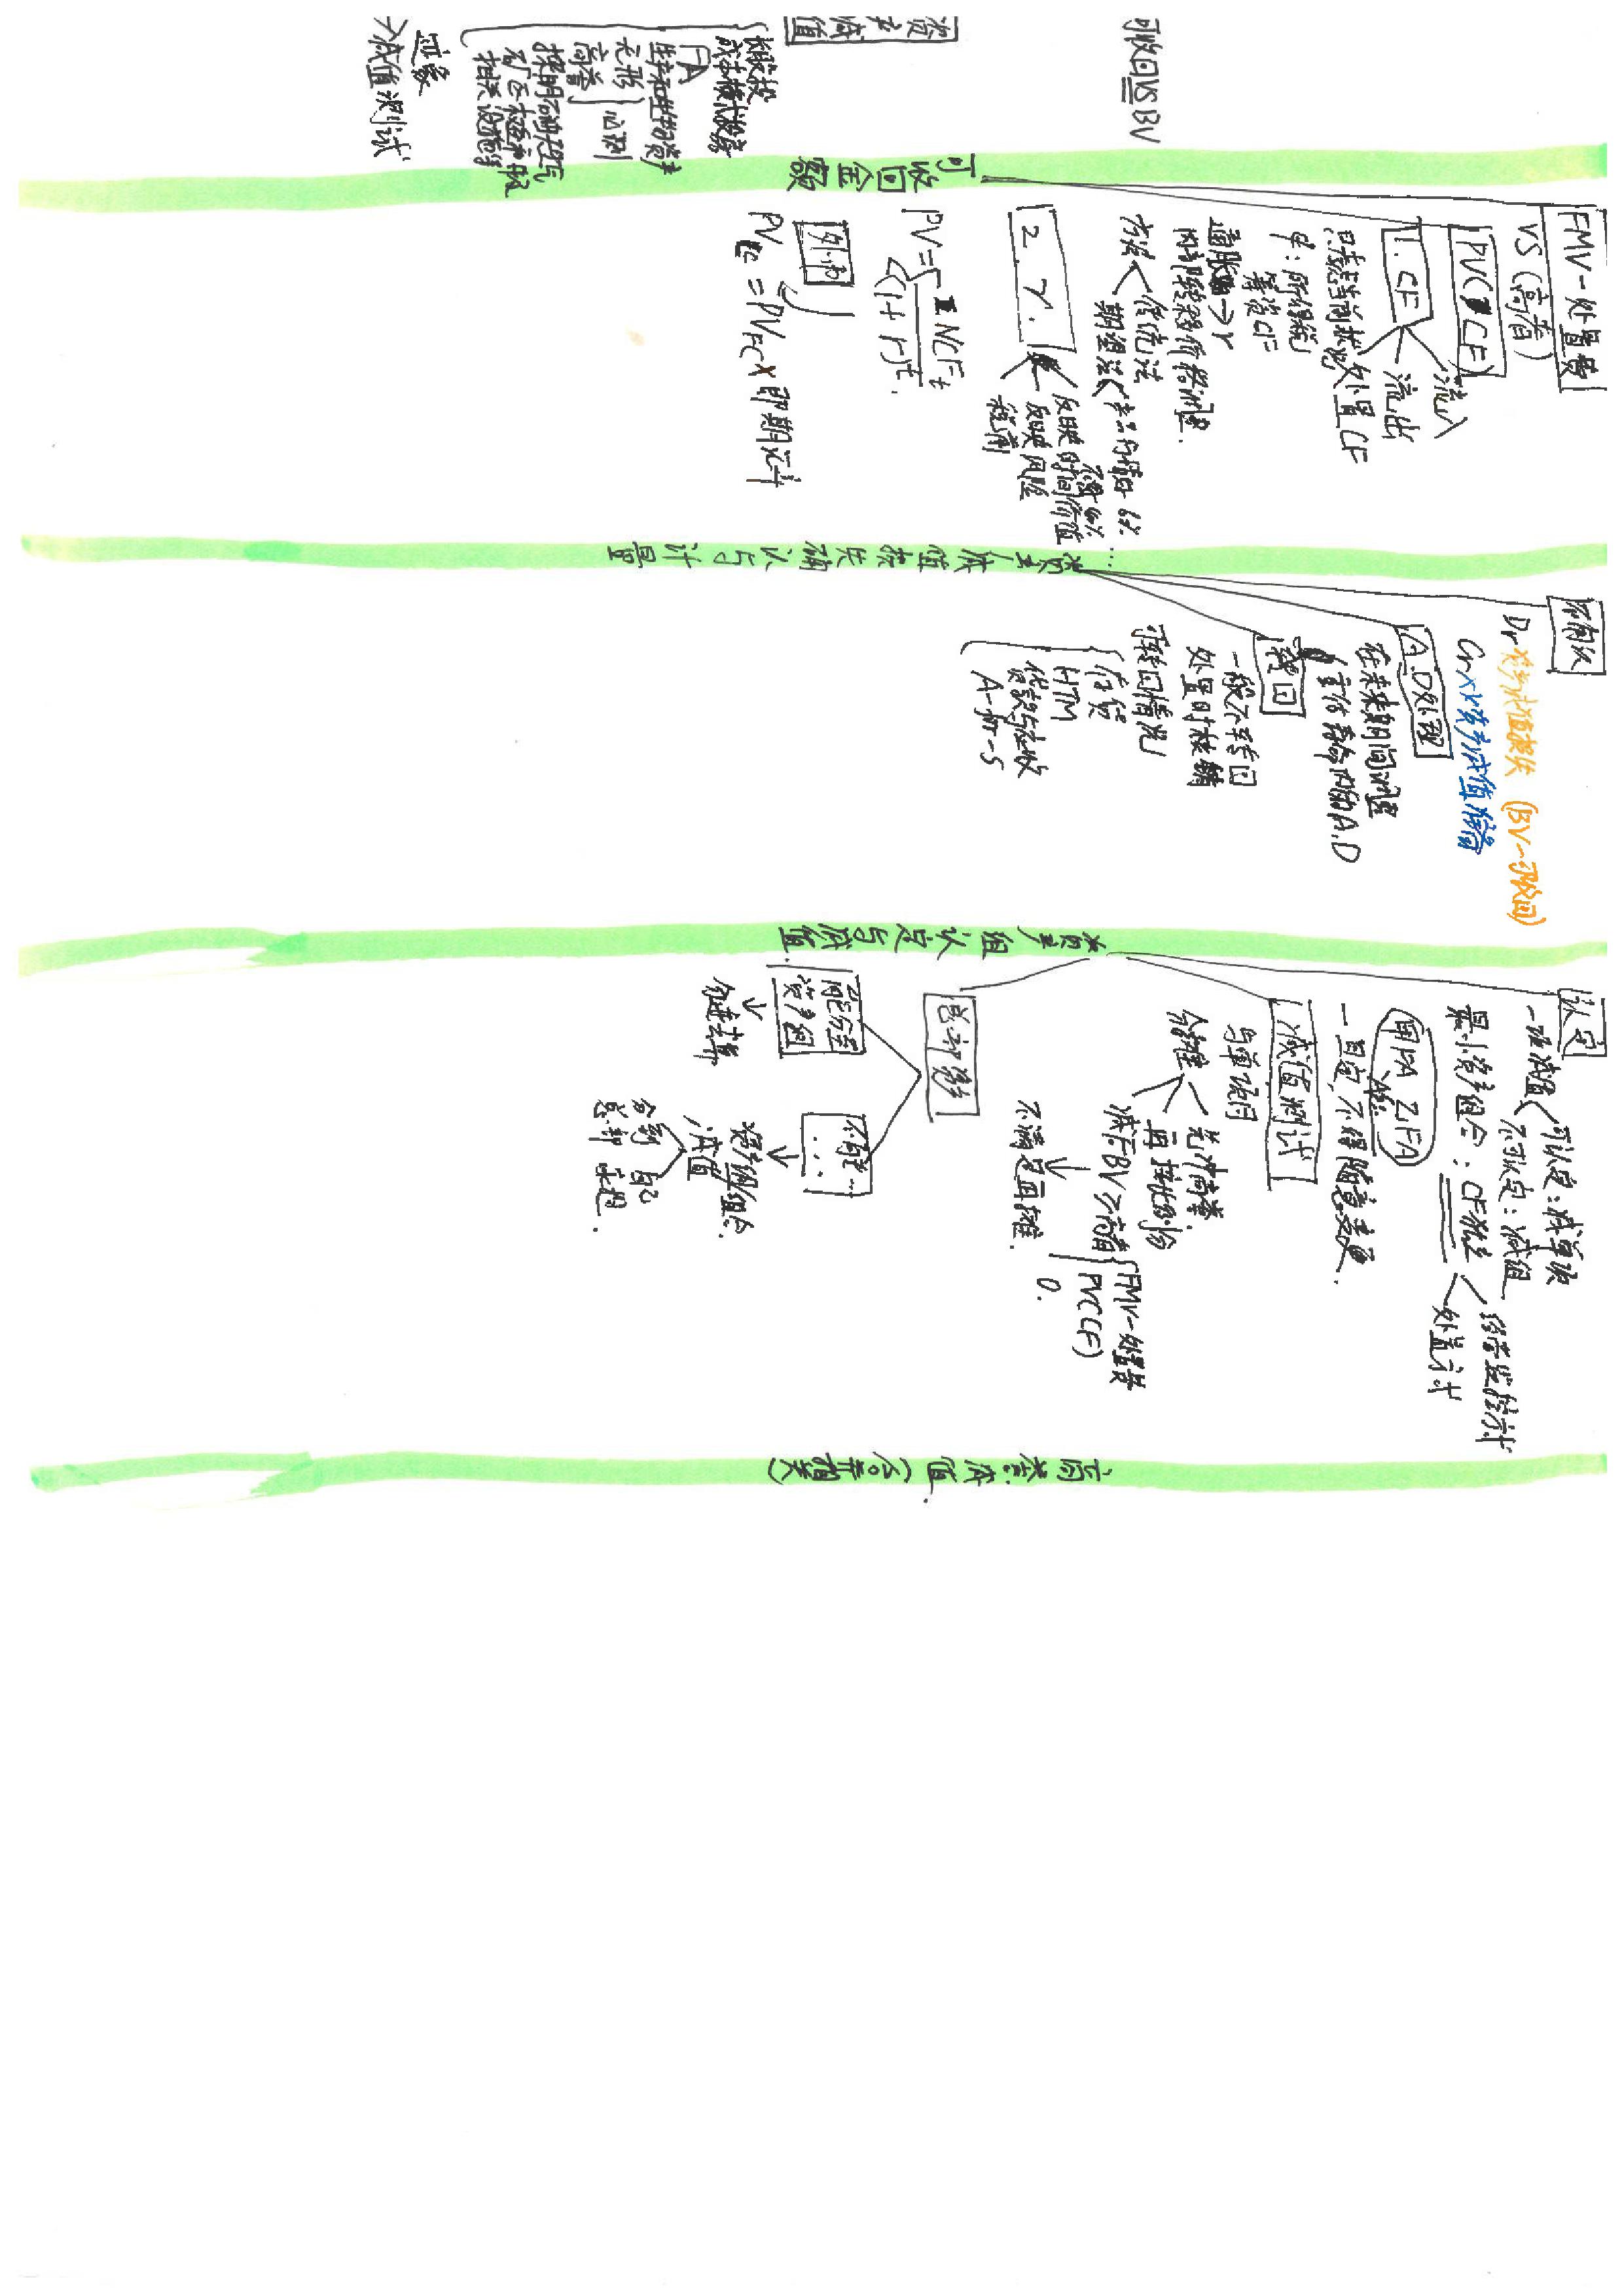 可收回VS BV
资产减值
长股投
成本模式投房
FA
生产和生物资产
无形
商誉
必测
探明石油天然气
矿区权益和井及
相关设施等
迹象
→减值测试
可收回金额
FMV-处置费
VS(高者)
PV(CF)
1. CF
流入
流出
处置CF
只考虑当前状况
所得税
筹资CF
通胀→r
内部转移价格调整.
方法
传统法
期望法
产品行情好 6%
不好 4%
...
2. r.
反映时间价值
反映风险
税前
PV=Σ NCFt/(1+r)^t.
外币
PV = PVFC×即期汇率
资产减值损失确认与计量
确认
Dr 资产减值损失 (BV-可收回)
Cr XX资产减值准备
A.D处理
在未来期间调整
重估寿命内的A.D
转回
一般不转回
处置时核销
可转回情况
存货
HTM
贷款与应收
A-for-S
资产组认定与减值.
认定
一项减值
可认定:减单项
不可认定:减组
最小资产组合:CF独立
经营监控方式
处置方式
甲FA 乙FA
一旦定,不得随意变更.
减值测试
与单项同
分摊
先冲商誉.
再按比例分
减后BV≥高者
FMV-处置费
PV(CF)
0.
不满足再摊.
总部资产
能分至
资产组
分进去算
不能...
...
资产组/组合.
减值
分到
总部
自己
承担.
商誉减值.(合并相关)